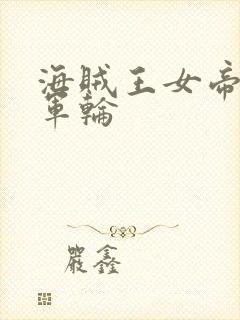 海賊王女帝
軍輪
嚴鑫